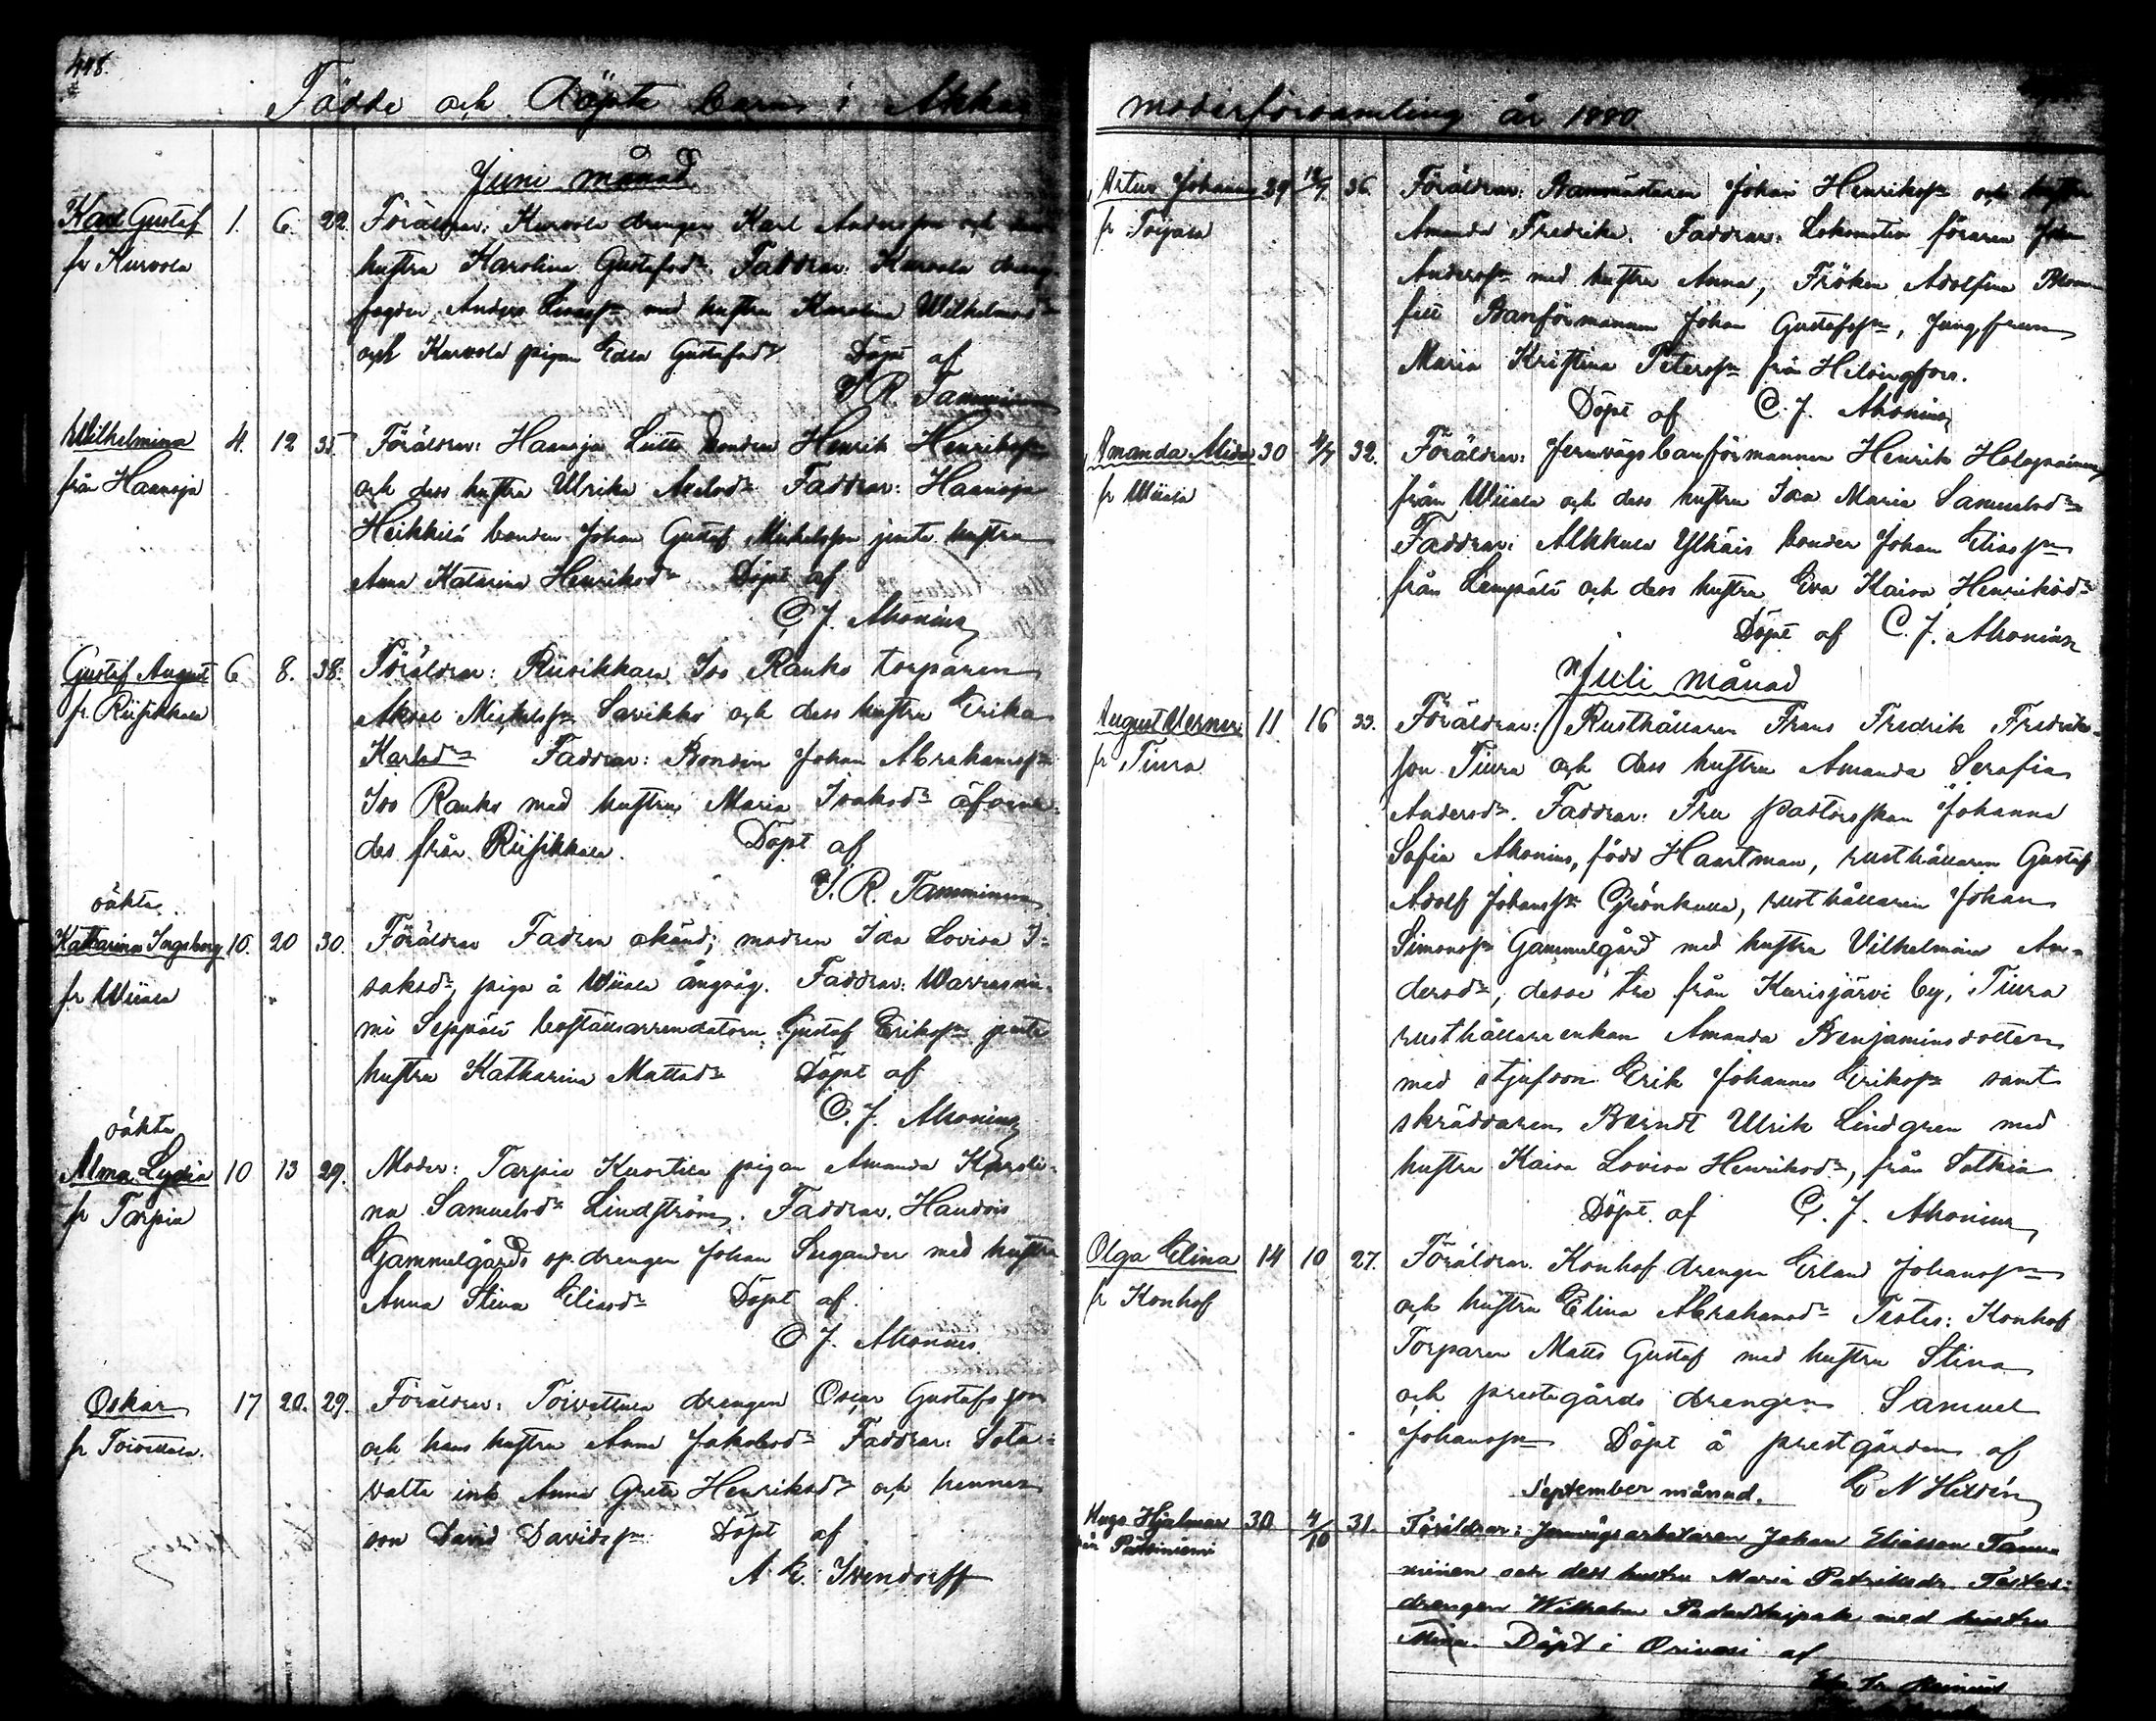 448.
Födde och Döpte barn i Akkas
Juni månad
Karl Gustaf 1. 6. 22. Föräldrar: Kurvola drengen Karl Andersson och dess
fr Kurvola hustru Karolina Gustafsdr. Faddrar: Kurvola dreng-
fogden Anders med hustru Karolina Wilhelmsdr
och Kurvola pigan Edla Gustafsdr Döpt af
T. R. Tamminen
Wilhelmina 4. 12 35. Föräldrar: Haansja bonden Henrik Henriksson
från Haansja och dess hustru Ulrika Axelsdr Faddrar: Haansja
Heikkilä bonden Johan Gustaf Mickelsson jemte hustru
Anna Katarina Henriksdr Döpt af
C. J. Ahonius
Gustaf August 6 8. 38. Föräldrar: Riisikkala Iso Ranko torparen
fr. Riisikkala Aksel Mickelsson Savikko och dess hustru Erika
Karlsdr Faddrar: Bonden Johan Abrahamsson
Iso Ranko med hustru Maria Isaksdr äfvenle-
des från Riisikkala. Döpt af
T. R. Tamminen
oäkta
Katharina Ingeborg 10. 20 30. Föräldrar Fadren okänd; modren Ida Lovisa I-
fr Wiiala saksdr, piga å Wiiala ångsåg. Faddrar: Warrasnie-
mi Seppälä boställsarrendatorn Gustaf Eriksson jemte
hustru Katharina Mattsdr Döpt af
C. J. Ahonius
oäkta
Alma Lydia 10 13 29. Moder: Tarpia Kuortila pigan Amanda Karoli-
fr Tarpia na Samuelsdr Lindström. Faddrar. Haudois
Gammelgårds sp. drengen Johan Sugander med hustru
Anna Stina Eliasdr Döpt af
C J. Ahonius.
Oskar 17 20. 29. Föräldrar: Toivattula drengen Oscar Gustafsson
fr Toivattula. och hans hustru Anna Jakobsdr Faddrar: Sota-
valta inh. Anna Greta Henriksdr och hennes
son David Davidsson Döpt af
A. E. Ivendorff
moderförsamling år 1880.
Artur Johannes 29 12/7 36. Föräldrar: Banmästaren Johan Henriksson och hustru
fr Toijala Amanda Fredrika. Faddrar: Lokomotiv föraren Johan
Andersson med hustru Anna, Fröken Adolfina
Banförmannen Johan Gustafsson, Jungfrun
Maria Kristina Petersson från Helsingfors.
Döpt af C. J. Ahonius
Amanda Alida 30 4/7 32. Föräldrar: Jernvägsbanförmannen Henrik Holopainen
fr Wiiala från Wiiala och dess hustru Ida Maria Samuelsdr
Faddrar: Alkkula Ylhäis bonden Johan Eliasson
från Lempälä och dess hustru Eva Kaisa Henriksdr
Döpt af C. J. Ahonius
Juli månad
August Verner 11 16 33. Föräldrar: Rusthållaren Frans Fredrik Fredriks-
fr Tiura son Tiura och dess hustru Amanda Serafia
Andersdr. Faddrar: Fru pastorskan Johanna
Sofia Ahonius, född Haartman, rusthållaren Gustaf
Adolf Johansson Grönkulla, rusthållaren Johan
Simonsson Gammelgård med hustru Vilhelmina An-
dersdr, desse tre från Kurisjärvi by, Tiura
rusthållareenkan Amanda Benjaminsdotter
med stjufson Erik Johannes Eriksson samt
skräddaren Berndt Ulrik Lindgren med
hustru Kaisa Lovisa Henriksdr, från Sotkia
Döpt af C. J. Ahonius
Olga Elina 14 10 27. Föräldrar. Konhof drengen Erland Johansson
fr Konhof och hustru Elina Abrahamsdr Testes: Konhof
Torparen Matts Gustaf med hustru Stina
och prestegårds drengen Samuel
Johansson Döpt å prestgården af
September månad. E N Heldén
Hugo Hjalmar 30. 4/10 31. Föräldrar: Jernvägsarbetaren Johan Eliasson Tam-
minen och dess hustru Maria Patriksdr. Testes:
drengen Wilhelm med hustru
Mina. Döpt i Orivesi af